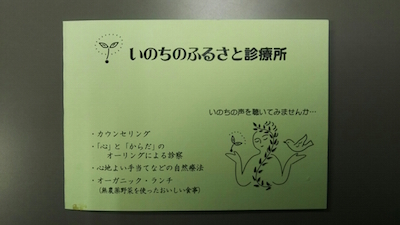 いのちのふるさと診療所
いのちの声を聴いてみませんか…
・カウンセリング
・「心」と「からだ」の
オーリングによる診察
・心地よい手当てなどの自然療法
・オーガニック・ランチ
(無農薬野菜を使ったおいしい食事)